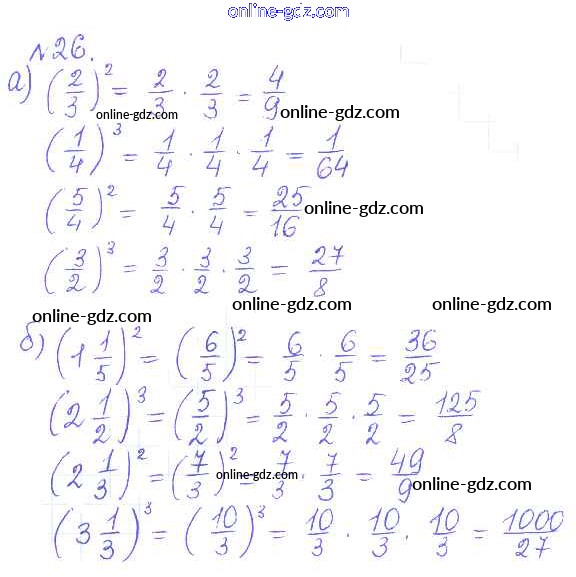 online-gdz.com
№26.
а) (2/3)² = 2/3 · 2/3 = 4/9
online-gdz.com online-gdz.com
(1/4)³ = 1/4 · 1/4 · 1/4 = 1/64
(5/4)² = 5/4 · 5/4 = 25/16 online-gdz.com
(3/2)³ = 3/2 · 3/2 · 3/2 = 27/8
online-gdz.com online-gdz.com online-gdz.com
б) (1 1/5)² = (6/5)² = 6/5 · 6/5 = 36/25
(2 1/2)³ = (5/2)³ = 5/2 · 5/2 · 5/2 = 125/8
(2 1/3)² = (7/3)² = 7/3 · 7/3 = 49/9
online-gdz.com online-gdz.com
(3 1/3)³ = (10/3)³ = 10/3 · 10/3 · 10/3 = 1000/27